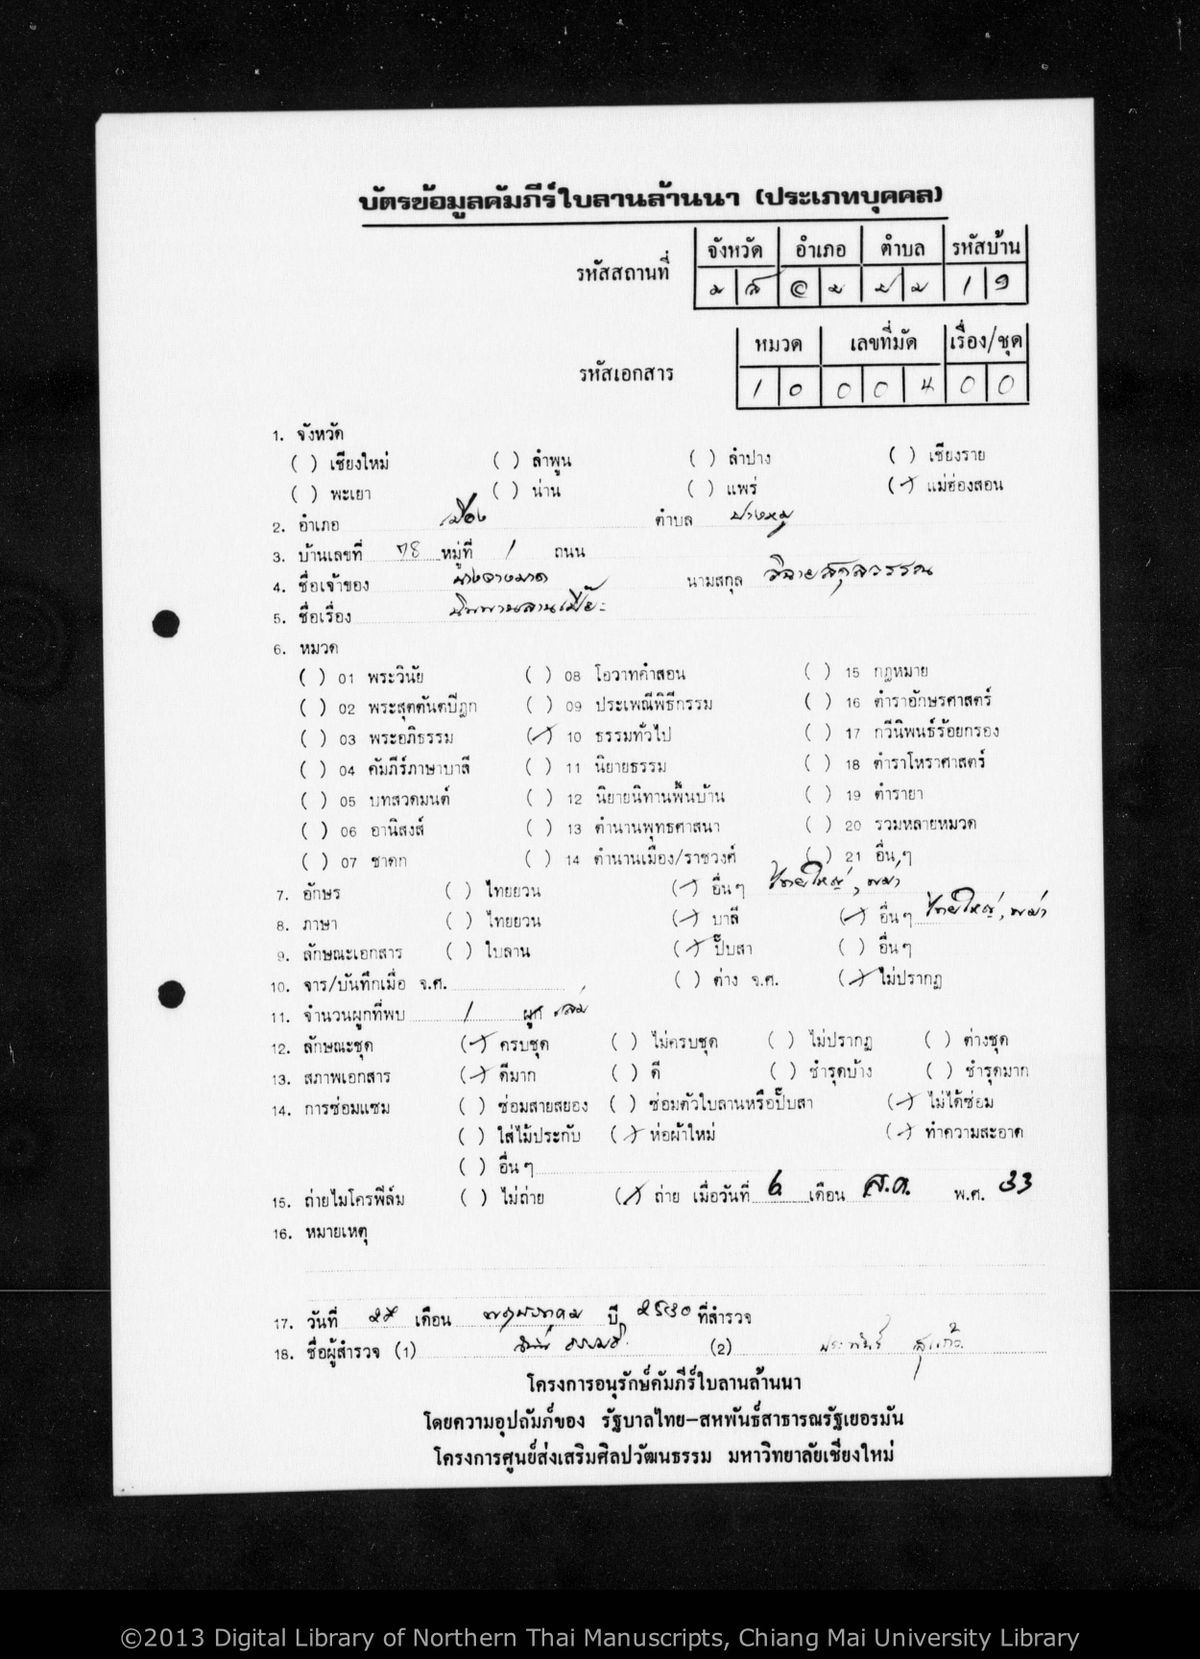 บัตรข้อมูลคัมภีร์ใบลานล้านนา (ประเภทบุคคล)
จังหวัด อำเภอ ตำบล รหัสบ้าน
รหัสสถานที่ ม ส ๑ ม ป ม 1 9
หมวด เลขที่มัด เรื่อง/ชุด
รหัสเอกสาร 1 0 0 0 4 0 0
1. จังหวัด
( ) เชียงใหม่ ( ) ลำพูน ( ) ลำปาง ( ) เชียงราย
( ) พะเยา ( ) น่าน ( ) แพร่ (✓) แม่ฮ่องสอน
2. อำเภอ เมือง ตำบล ปางหมู
3. บ้านเลขที่ 78 หมู่ที่ 1 ถนน
4. ชื่อเจ้าของ นางจางมาด นามสกุล
5. ชื่อเรื่อง
6. หมวด
( ) 01 พระวินัย ( ) 08 โอวาทคำสอน ( ) 15 กฎหมาย
( ) 02 พระสุตตันตปิฎก ( ) 09 ประเพณีพิธีกรรม ( ) 16 ตำราอักษรศาสตร์
( ) 03 พระอภิธรรม (✓) 10 ธรรมทั่วไป ( ) 17 กวีนิพนธ์ร้อยกรอง
( ) 04 คัมภีร์ภาษาบาลี ( ) 11 นิยายธรรม ( ) 18 ตำราโหราศาสตร์
( ) 05 บทสวดมนต์ ( ) 12 นิยายนิทานพื้นบ้าน ( ) 19 ตำรายา
( ) 06 อานิสงส์ ( ) 13 ตำนานพุทธศาสนา ( ) 20 รวมหลายหมวด
( ) 07 ชาดก ( ) 14 ตำนานเมือง/ราชวงศ์ ( ) 21 อื่นๆ
7. อักษร ( ) ไทยยวน (✓) อื่นๆ ไทยใหญ่, พม่า
8. ภาษา ( ) ไทยยวน (✓) บาลี (✓) อื่นๆ ไทยใหญ่, พม่า
9. ลักษณะเอกสาร ( ) ใบลาน (✓) ปั๊บสา ( ) อื่นๆ
10. จาร/บันทึกเมื่อ จ.ศ. ( ) ต่าง จ.ศ. (✓) ไม่ปรากฏ
11. จำนวนผูกที่พบ 1 ผูก เล่ม
12. ลักษณะชุด (✓) ครบชุด ( ) ไม่ครบชุด ( ) ไม่ปรากฏ ( ) ต่างชุด
13. สภาพเอกสาร (✓) ดีมาก ( ) ดี ( ) ชำรุดบ้าง ( ) ชำรุดมาก
14. การซ่อมแซม ( ) ซ่อมสายสยอง ( ) ซ่อมตัวใบลานหรือปั๊บสา (✓) ไม่ได้ซ่อม
( ) ใส่ไม้ประกับ (✓) ห่อผ้าใหม่ (✓) ทำความสะอาด
( ) อื่นๆ
15. ถ่ายไมโครฟิล์ม ( ) ไม่ถ่าย (✓) ถ่าย เมื่อวันที่ 6 เดือน ส.ค. พ.ศ. 33
16. หมายเหตุ
17. วันที่ เดือน พฤษภาคม ปี 2530 ที่สำรวจ
18. ชื่อผู้สำรวจ (1) (2) ประพันธ์ สุแก้ว
โครงการอนุรักษ์คัมภีร์ใบลานล้านนา
โดยความอุปถัมภ์ของ รัฐบาลไทย-สหพันธ์สาธารณรัฐเยอรมัน
โครงการศูนย์ส่งเสริมศิลปวัฒนธรรม มหาวิทยาลัยเชียงใหม่
©2013 Digital Library of Northern Thai Manuscripts, Chiang Mai University Library